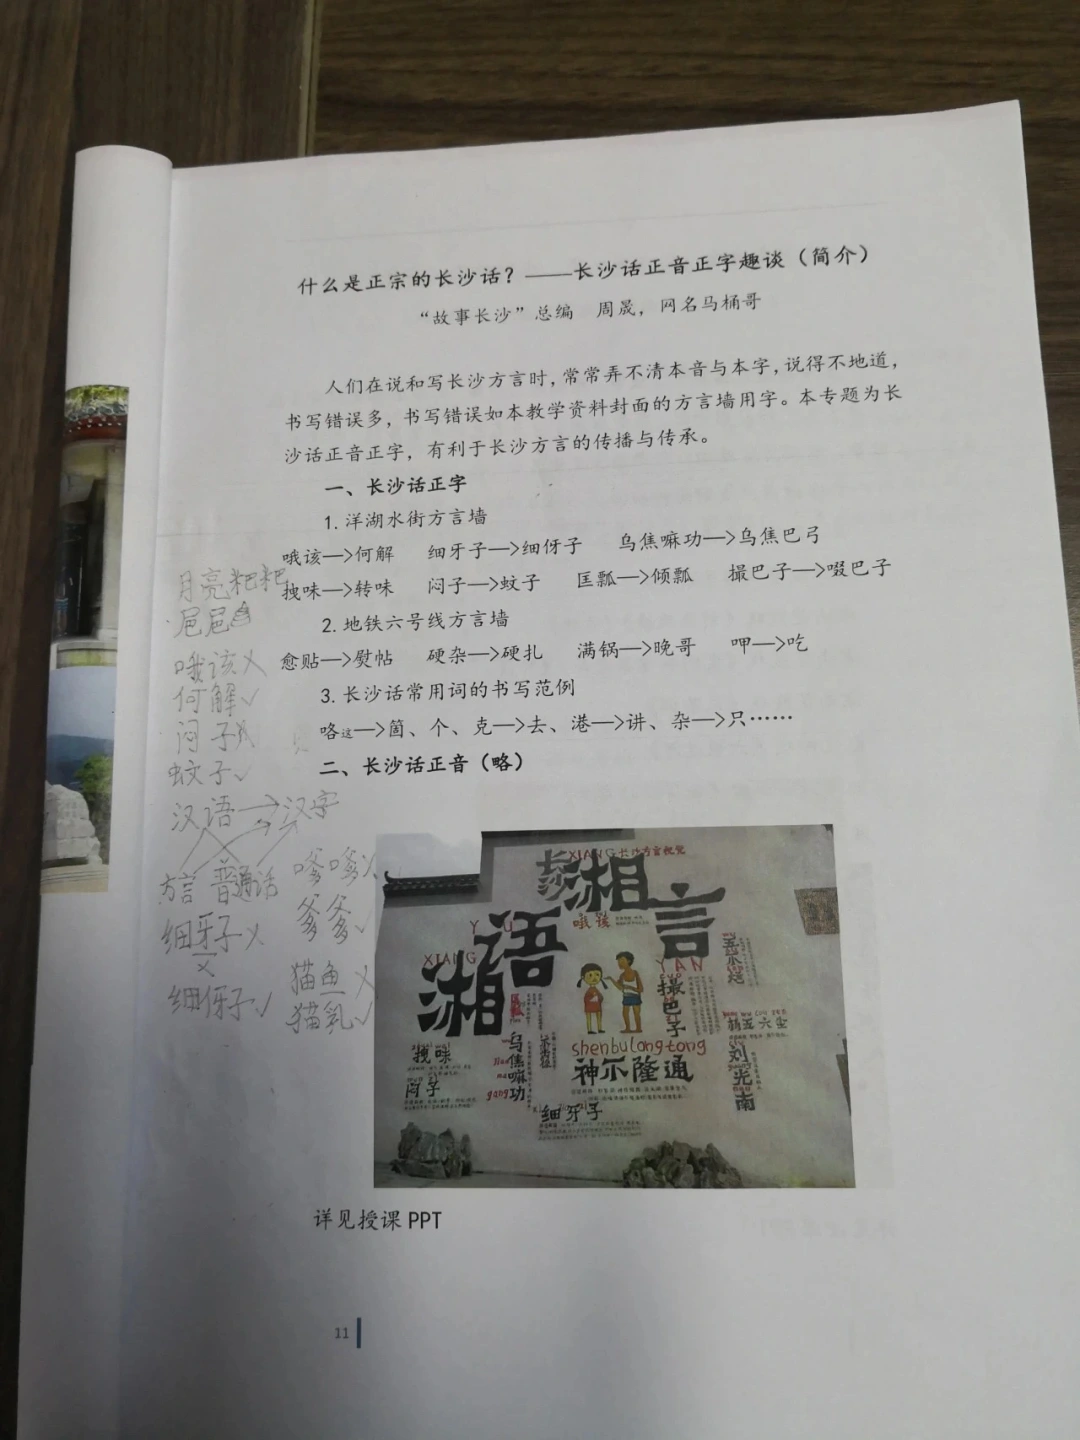 什么是正宗的长沙话？——长沙话正音正字趣谈（简介）
“故事长沙”总编　周晟，网名马桶哥
人们在说和写长沙方言时，常常弄不清本音与本字，说得不地道，
书写错误多，书写错误如本教学资料封面的方言墙用字。本专题为长
沙话正音正字，有利于长沙方言的传播与传承。
一、长沙话正字
1. 洋湖水街方言墙
哦该—>何解　细牙子—>细伢子　乌焦嘛功—>乌焦巴弓
拽味—>转味　闷子—>蚊子　匡瓢—>倾瓢　撮巴子—>啜巴子
2. 地铁六号线方言墙
愈贴—>熨帖　硬杂—>硬扎　满锅—>晚哥　呷—>吃
3. 长沙话常用词的书写范例
咯这—>箇、个、克—>去、港—>讲、杂—>只……
二、长沙话正音（略）
月亮粑粑
哦该 X
何解 √
闷子 X
蚊子 √
汉语 → 汉字
方言 普通话
细牙子 X
X
细伢子 √
嗲嗲 X
爹爹 √
猫鱼 X
猫乳 √
XIANG 长沙方言视觉
湘
言
YAN
哦该
YU
语
XIANG
湘
撮巴子
乌焦嘛功
拽味
闷子
shenbulongtong
神不隆通
细牙子
杨五六尘
刘光南
详见授课 PPT
11